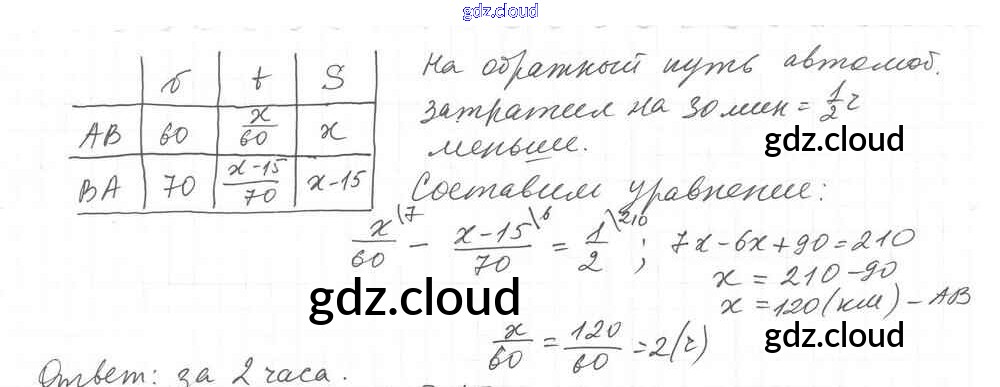 gdz.cloud
σ t S
AB 60 x/60 x
BA 70 x-15/70 x-15
На обратный путь автомоб.
затратил на 30 мин = 1/2 ч
меньше.
gdz.cloud
Составим уравнение:
x/60 \7 - x-15/70 \6 = 1/2 \210 ; 7x-6x+90=210
x = 210-90
x = 120 (км) - AB
gdz.cloud
x/60 = 120/60 = 2 (ч)
gdz.cloud
Ответ: за 2 часа.